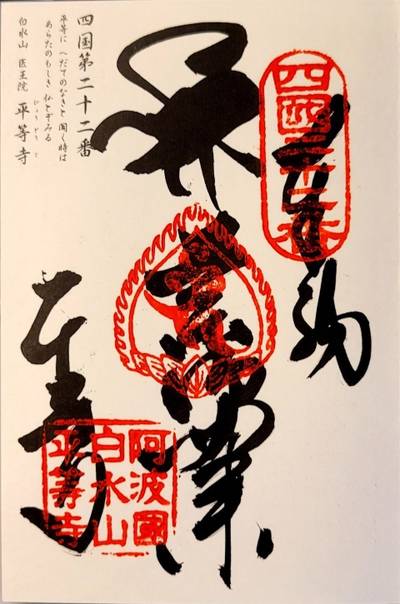 奉納
平等寺
阿波國
白水山
平等寺
四国第二十二番
平等に へだてのなきと 聞く時は
あらたのもしき 仏とぞみる
白水山 医王院 平等寺
びょうどうじ